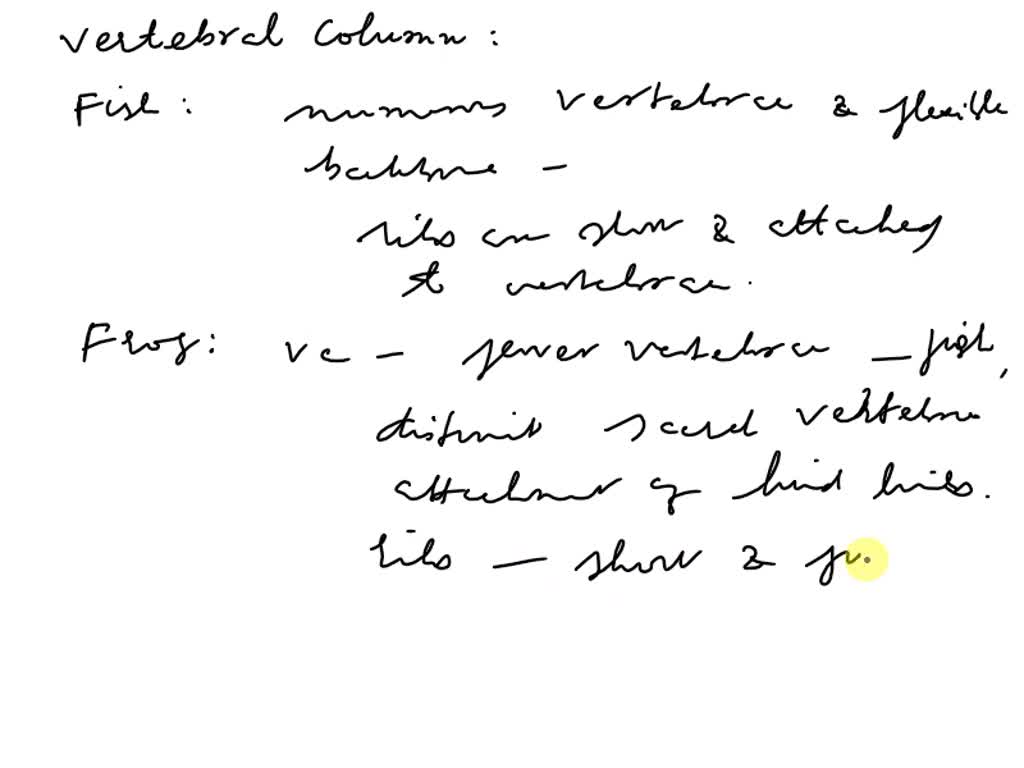 Vertebral Column :
Fish : numerous vertebrae & flexible
backbone –
ribs are short & attached
to vertebrae.
Frog : VC – fewer vertebrae – fish,
distinct sacral vertebrae
attachment of hind limbs.
ribs – short &